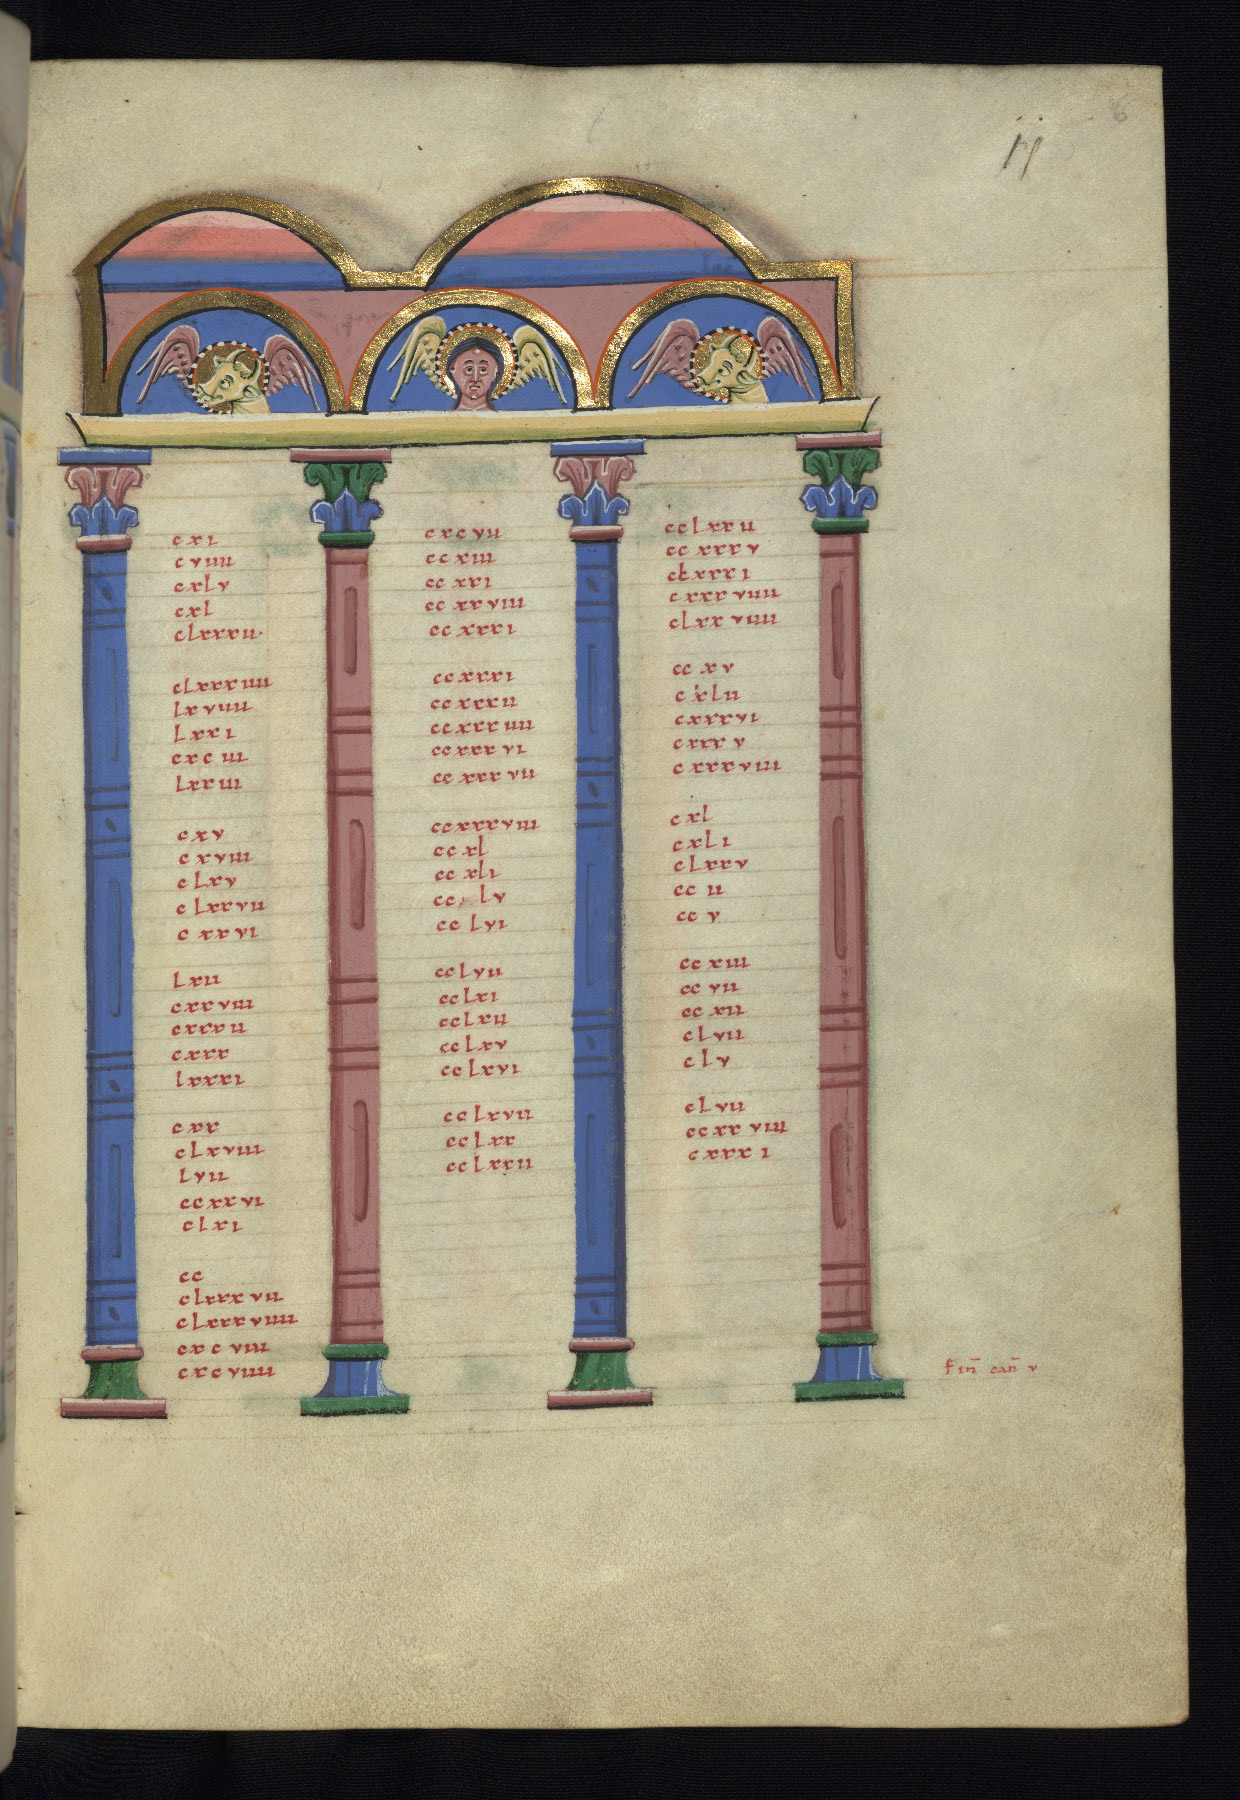 cxi
cviiii
cxlv
cxl
clxxxii·
clxxxiiii
lxviiii
lxxi
cxciii
lxxiii
cxv
cxviiii
clxv
clxxvii
cxxvi
lxii
cxxviii
cxxxii
cxxx
lxxxi
cxx
clxviiii
lvii
ccxxvi
clxi
cc
clxxxvii
clxxxviiii
cxcviii
cxcviiii
cxcvii
ccxiii
ccxxi
ccxxviii
ccxxxi
ccxxxi
ccxxxii
ccxxxiiii
ccxxxvi
ccxxxvii
ccxxxviii
ccxl
ccxli
cclv
cclvi
cclvii
cclxi
cclxii
cclxv
cclxvi
cclxvii
cclxx
cclxxii
cclxxii
ccxxxv
clxxxi
cxxxviiii
clxxviiii
ccxv
cxlii
cxxxvi
cxxxv
cxxxviii
cxl
cxli
clxxv
ccii
ccv
ccxiii
ccvii
ccxii
clvii
clv
clvii
ccxxviii
cxxxi
Fin̄ can̄ v